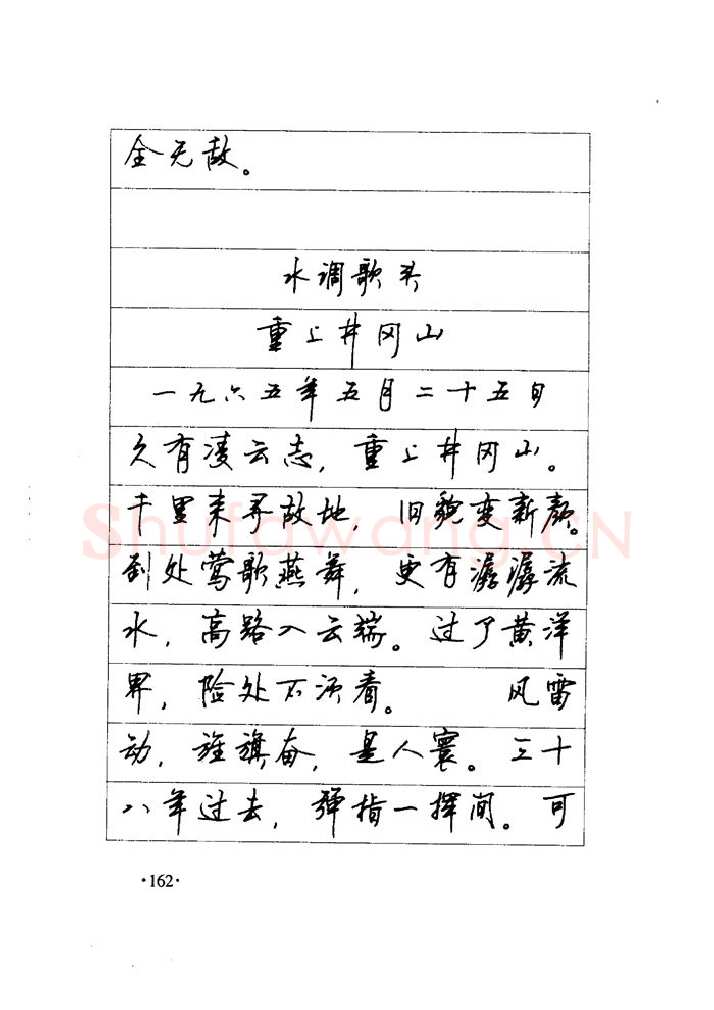 全无敌。
水调歌头
重上井冈山
一九六五年五月二十五日
久有凌云志，重上井冈山。
千里来寻故地，旧貌变新颜。
到处莺歌燕舞，更有潺潺流
水，高路入云端。过了黄洋
界，险处不须看。 风雷
动，旌旗奋，是人寰。三十
八年过去，弹指一挥间。可
·162·
Shufawang.CN